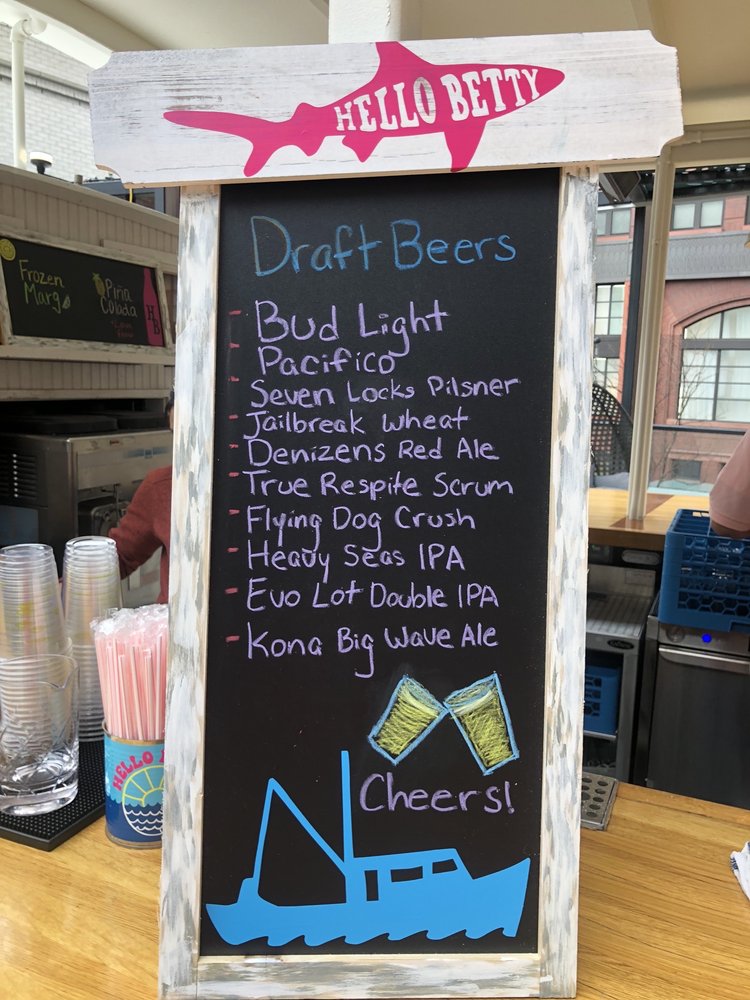 HELLO BETTY
Draft Beers
- Bud Light
- Pacifico
- Seven Locks Pilsner
- Jailbreak Wheat
- Denizens Red Ale
- True Respite Scrum
- Flying Dog Crush
- Heavy Seas IPA
- Evo Lot Double IPA
- Kona Big Wave Ale
Cheers!
Frozen
Marg
Piña
Colada
HELLO